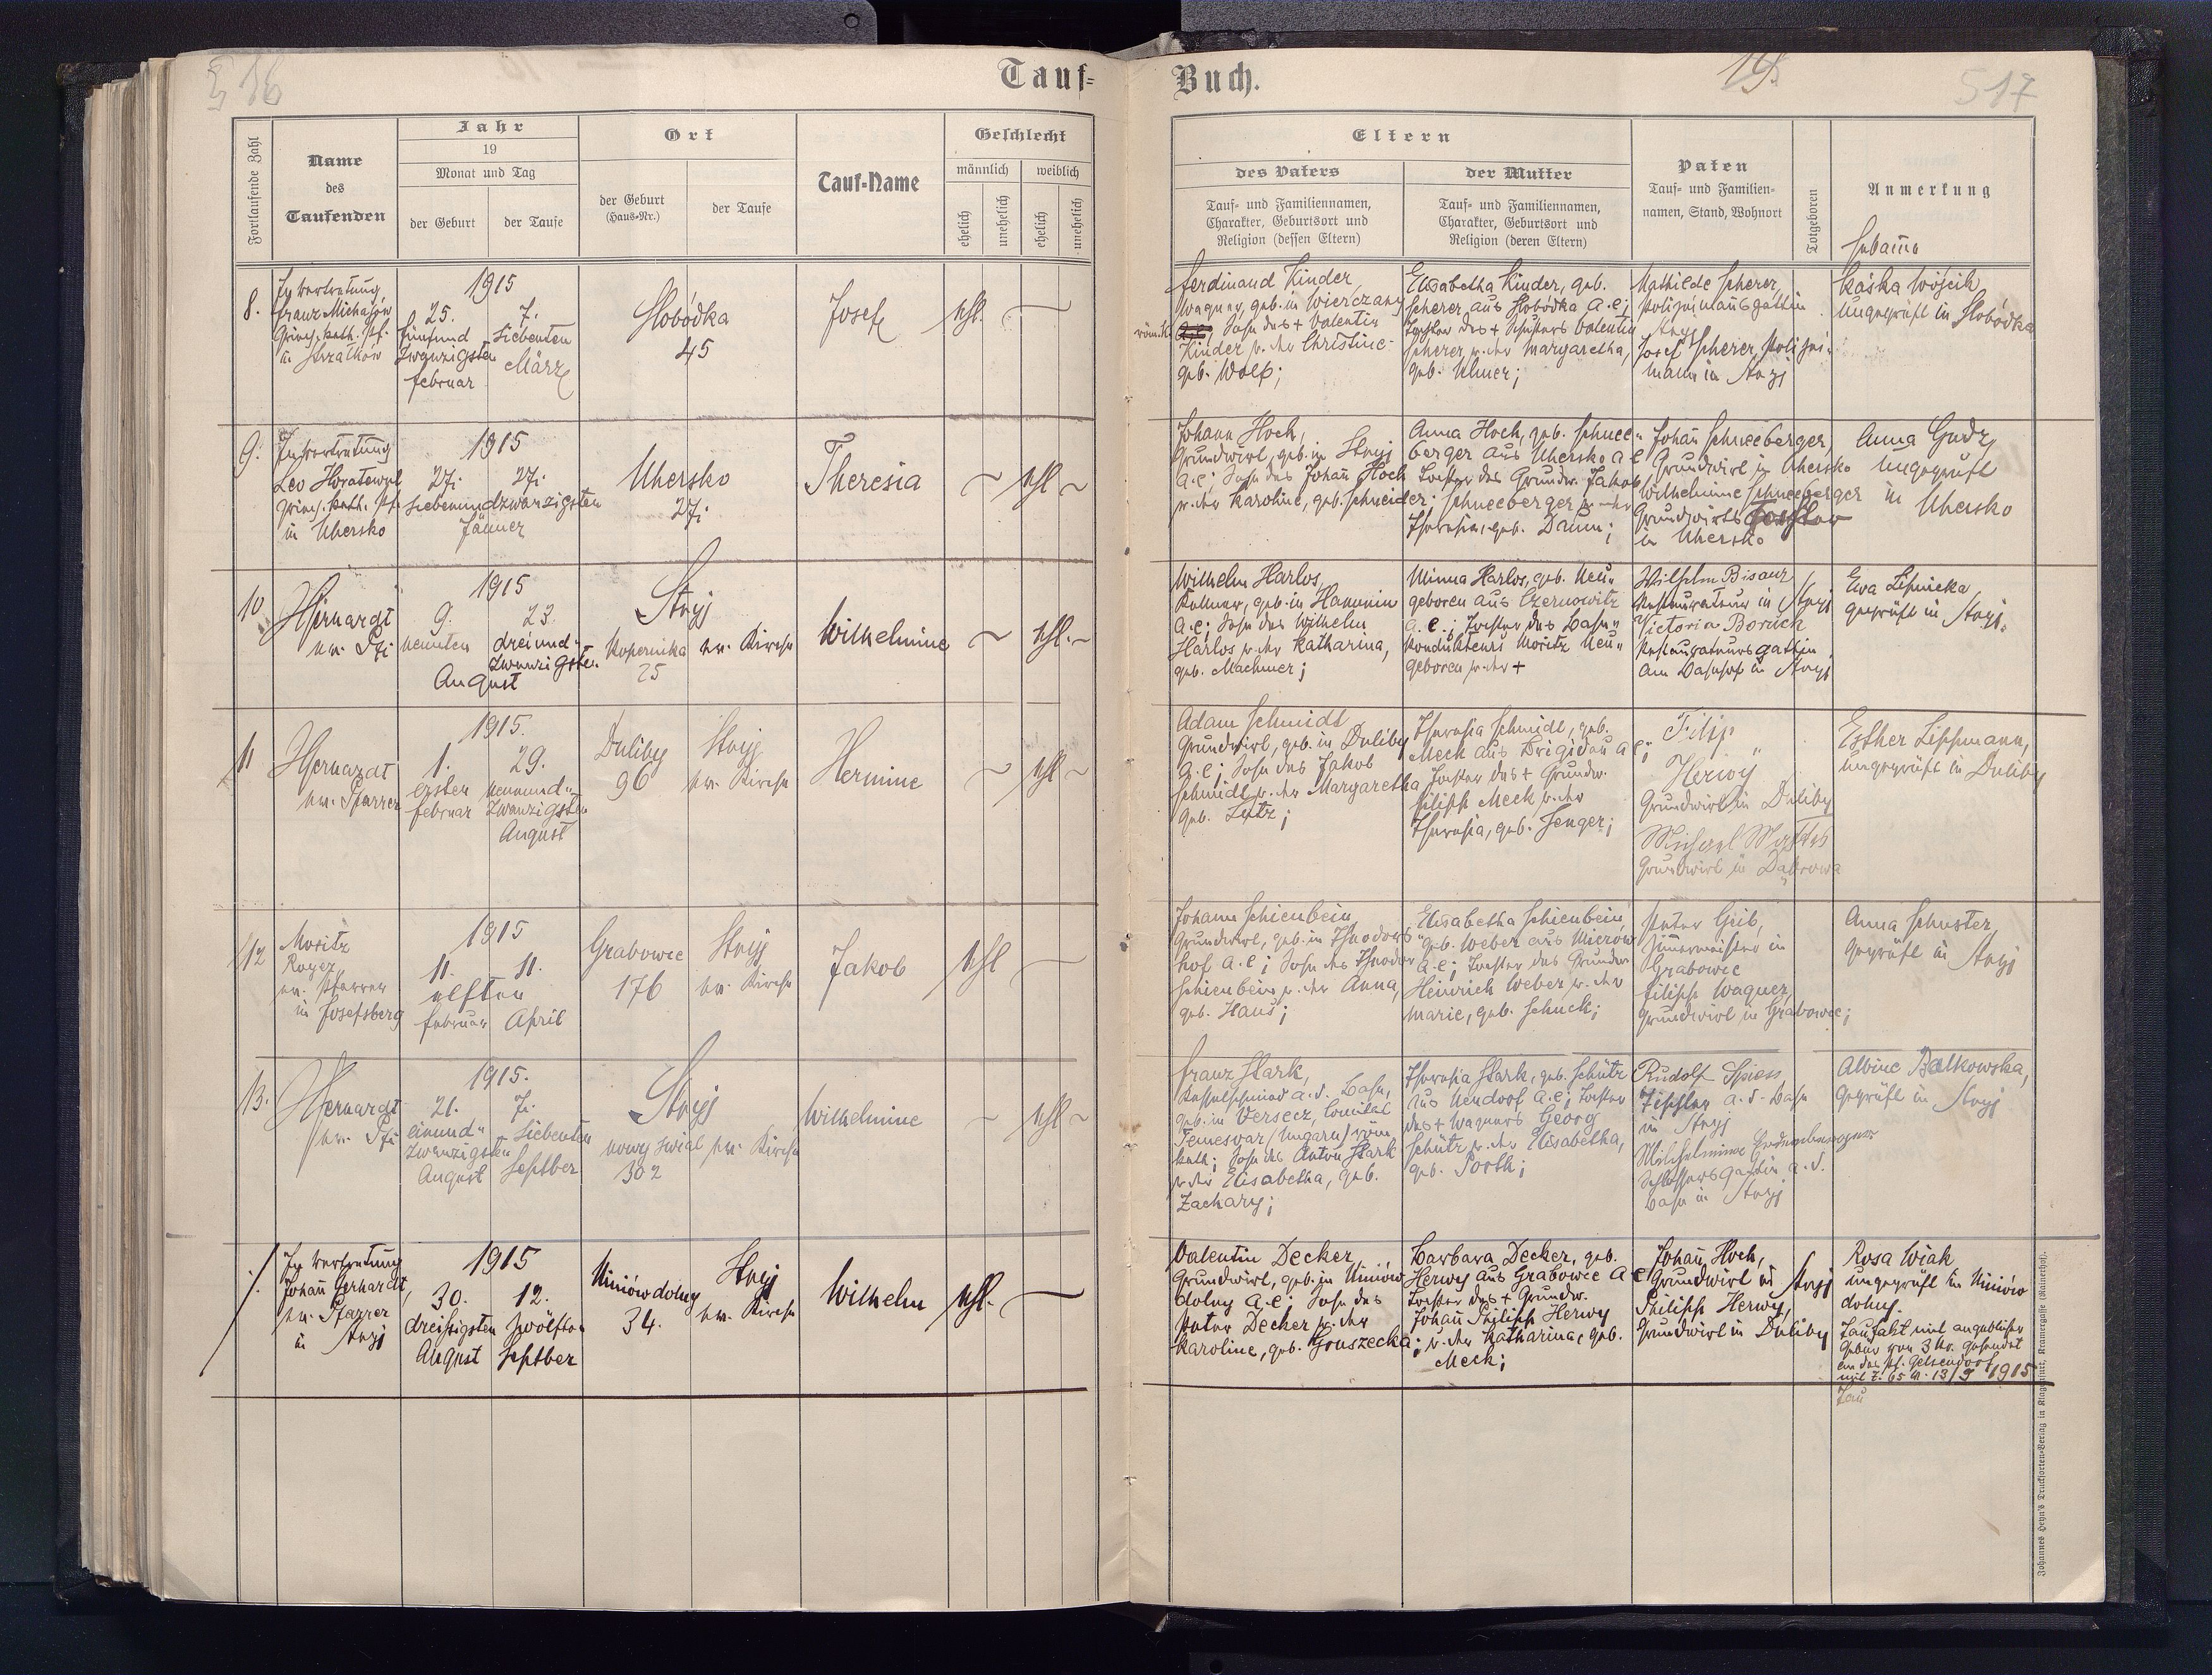 516
Tauf-
Buch.
19
517
Fortlaufende Zahl
Name
des
Taufenden
Jahr
19
Monat und Tag
der Geburt
der Taufe
Ort
der Geburt
(Haus-Nr.)
der Taufe
Tauf-Name
Geschlecht
männlich
weiblich
ehelich
unehelich
ehelich
unehelich
Eltern
des Vaters
Tauf- und Familiennamen,
Charakter, Geburtsort und
Religion (dessen Eltern)
der Mutter
Tauf- und Familiennamen,
Charakter, Geburtsort und
Religion (deren Eltern)
Paten
Tauf- und Familien-
namen, Stand, Wohnort
Totgeboren
Anmerkung
Hebamme
8.
In Vertretung
Franz Michajów
Griech. kath. Pf.
in Strzałków
1915
25.
fünfund
zwanzigsten
Februar
7.
siebenten
März
Słobódka
45
Josef
ehl.
Ferdinand Kinder,
Wagner, geb. in Wierczany
röm. k.
Sohn des + Valentin
Kinder u. der Christine
geb. Wolf;
Elisabetha Kinder, geb.
Scherer aus Słobódka A.C;
Tochter des + Schusters Valentin
Scherer u. der Margaretha,
geb. Ulmer;
Mathilde Scherer,
Polizeimannsgattin
Stryj
Josef Scherer, Polizei-
mann in Stryj
Kaśka Wójcik
ungeprüft in Słobódka
9.
In Vertretung
Leo
Griech. kath. Pf.
in Uhersko
1915
27.
27.
siebenundzwanzigsten
Jänner
Uhersko
27.
Theresia
ehl
Johann Hoch,
Grundwirt, geb. in Stryj
A.C; Sohn des Johann Hoch
u. der Karoline, geb. Schneider;
Anna Hoch, geb. Schnee-
berger aus Uhersko A C
Tochter des Grundw. Jakob
Schneeberger u. der
Theresia, geb. Daum;
Johann Schneeberger,
Grundwirt in Uhersko
Wilhelmine Schneeberger
Grundwirts Tochter
in Uhersko
Anna Gudz,
ungeprüft
in
Uhersko
10
ev. Pf.
1915
9.
neunten
23.
dreiund-
zwanzigsten
August
Stryj
Kopernika
25
ev. Kirche
Wilhelmine
ehl.
Wilhelm Harlos,
Kellner, geb. in Hanunin
A.C; Sohn des Wilhelm
Harlos u. der Katharina,
geb. Machmer;
Minna Harlos, geb. Neu-
geboren aus Czernowitz
A.C.; Tochter des Bahn-
kondukteurs Moritz Neu-
geboren u. der +
Wilhelm Bisanz
Restaurateur in Stryj
Victoria Boruch
Restaurateursgattin
am Bahnhof in Stryj
Ewa Lipnicka,
geprüft in Stryj.
11
ev. Pfarrer
1915.
1.
ersten
Februar
29.
neunund-
zwanzigsten
August
Duliby
96
Stryj
ev. Kirche
Hermine
ehl
Adam Schmidt
Grundwirt, geb. in Duliby
A.C; Sohn des Jakob
Schmidt u. der Margaretha
geb. Lutz;
Theresia Schmidt, geb.
Meck aus Brigidau A C;
Tochter des + Grundw.
Filipp Meck u. der
Theresia, geb. Jenger;
Filip
Herwy
Grundwirt in Duliby
Michael
Grundwirt in Dąbrowa
Esther Lippmann,
ungeprüft in Duliby
12
Moritz
Royer,
ev. Pfarrer
in Josefsberg
1915
11.
11.
elften
Februar
April
Grabowce
176
Stryj
ev. Kirche
Jakob
ehl
Johann Schienbein,
Grundwirt, geb. in Theodors-
hof A.C; Sohn des Theodor
Schienbein u. der Anna,
geb. Haus;
Elisabetha Schienbein
geb. Weber aus Mierów
A.C; Tochter des Grundw
Heinrich Weber u. der
Marie, geb. Schuck;
Peter Geib,
Zimmermeister in
Grabowce
Filipp Wagner,
Grundwirt in Grabowce;
Anna Schuster,
geprüft in Stryj
13.
ev. Pf.
1915.
21.
einund-
zwanzigsten
August
7.
siebenten
Septber
Stryj
nowy świat
302
ev. Kirche
Wilhelmine
ehl
Franz Stark,
Kesselschmied a. d. Bahn,
geb. in Versecz, Comitat
Temesvar (Ungarn) röm
kath; Sohn des Anton Stark
u. der Elisabetha, geb.
Zachary;
Theresia Stark, geb. Schütz
aus Neudorf A.C; Tochter
des + Wagners Georg
Schütz u. der Elisabetha,
geb. Porth;
Rudolf Spiess
Tischler a. d. Bahn
in Stryj
Wilhelmine
Schlossersgattin a. d.
Bahn in Stryj
Albine Balkowska,
geprüft in Stryj
./.
In Vertretung
Johann Gerhardt,
ev. Pfarrer
in Stryj
1915
30.
dreißigsten
August
12.
zwölften
Septber
Uniów dolny
34.
Stryj
ev. Kirche
Wilhelm
ehl.
Valentin Decker,
Grundwirt, geb. in Uniów
dolny A.C; Sohn des
Peter Decker u. der
Karoline, geb. Gruszecka;
Barbara Decker, geb.
Herwy aus Grabowce A C
Tochter des + Grundw.
Johann Philipp Herwy
u. der Katharina, geb.
Meck;
Johann Hoch,
Grundwirt in Stryj
Philipp Herwy,
Grundwirt in Duliby
Rosa Wiak
ungeprüft in Uniów
dolny.
Taufakt mit angeblicher
Gebür von 3 Kr. gesendet
an das Pf. Gelsendorf
mit Z. 65 v. 13/9 1915
Johannes Heyn's Drucksorten-Verlag in Klagenfurt, Kramergasse (Rainerhof).